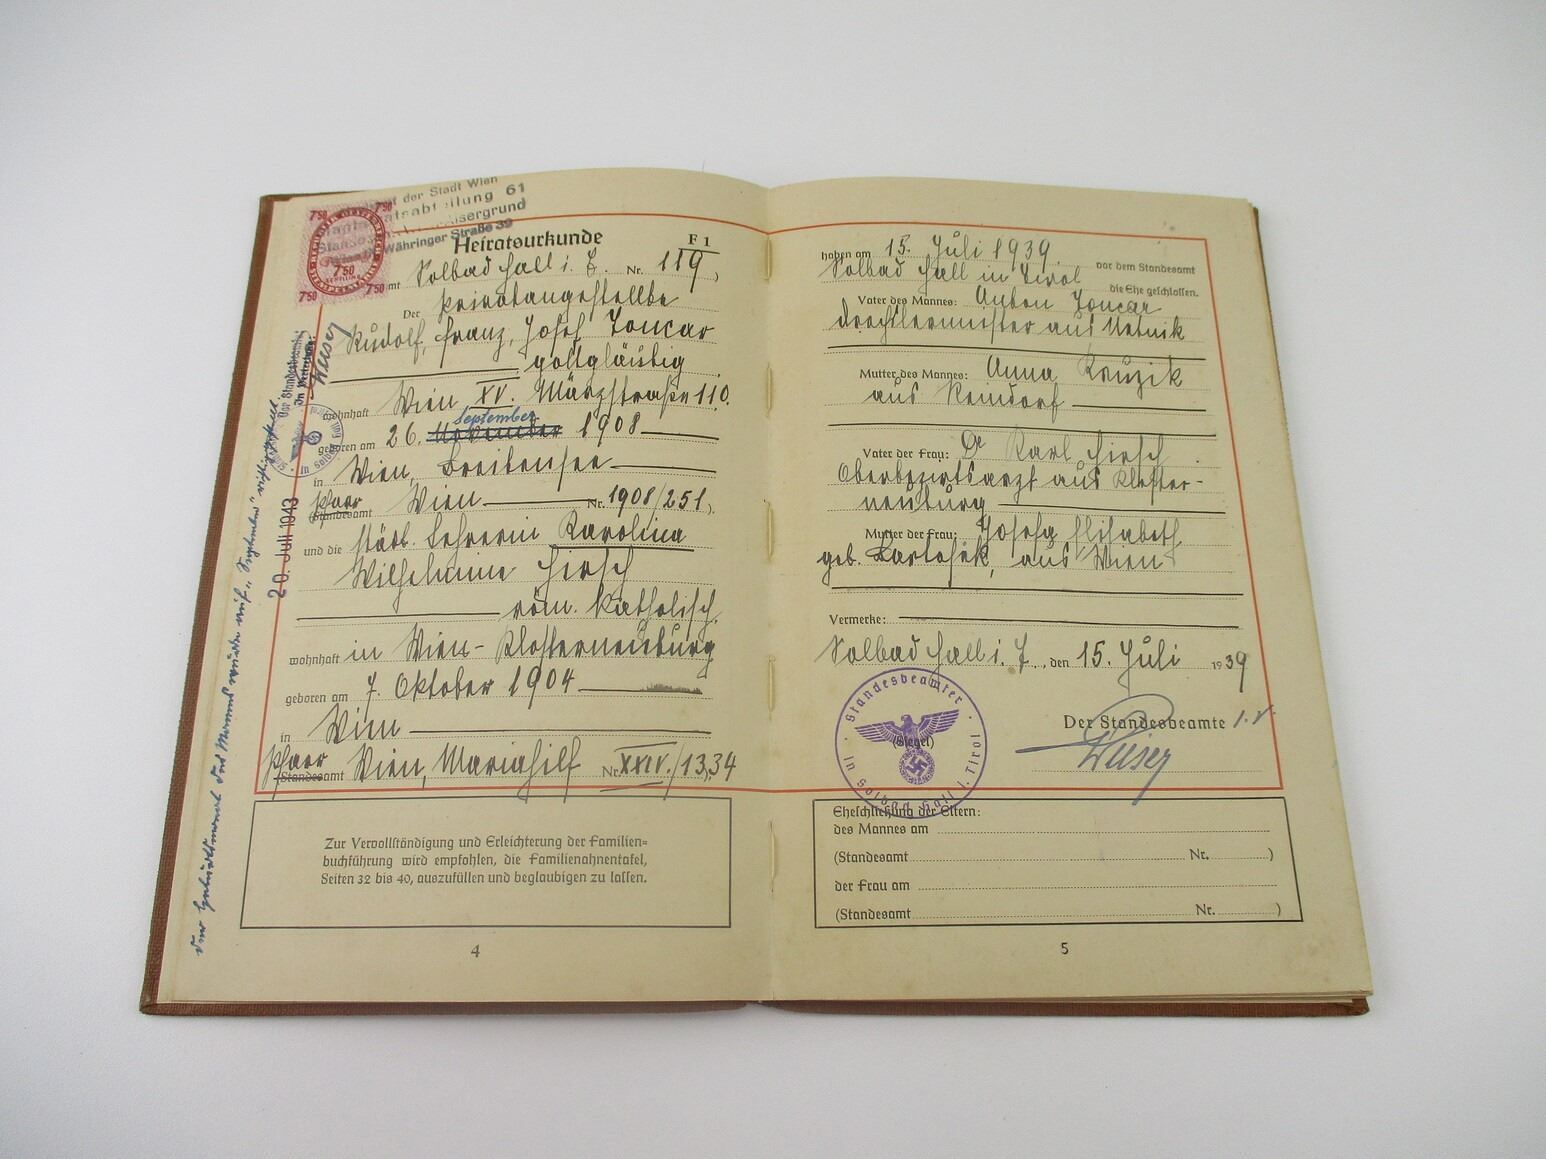 der Stadt Wien
61
Währinger Straße 39
7 50
7 50
7 50
7 50
7 50
Heiratsurkunde
F 1
Solbad Hall i. T. Nr. 119,
Der Privatangestellte
Rudolf, Franz, Josef Toncar
gottgläubig
wohnhaft Wien XV. Märzstraße 110.
September
geboren am 26. November 1908
in Wien, Breitensee
Pfarr
Standesamt Wien Nr. 1908/251).
und die städt. Lehrerin Karolina
Wilhelmine Hirsch
röm. katholisch.
wohnhaft in Wien-Klosterneuburg
geboren am 7. Oktober 1904
in Wien
Pfarr
Standesamt Wien, Mariahilf Nr. XXIV./13,34
Der Geburtsmonat des Mannes wurde auf "September" richtiggestellt
20. Juli 1943
Der Standesbeamte
Zur Vervollständigung und Erleichterung der Familien=
buchführung wird empfohlen, die Familienahnentafel,
Seiten 32 bis 40, auszufüllen und beglaubigen zu lassen.
4
haben am 15. Juli 1939. vor dem Standesamt
Solbad Hall in Tirol die Ehe geschlossen.
Vater des Mannes: Anton Toncar
Drechslermeister aus
Mutter des Mannes: Anna
aus Reindorf
Vater der Frau: Dr Karl Hirsch
Oberbezirksarzt aus Kloster-
neuburg
Mutter der Frau: Josefa Elisabeth
geb. aus Wien
Vermerke:
Solbad Hall i. T., den 15. Juli 1939
Der Standesbeamte i. V.
(Siegel)
Standesbeamter
in Solbad Hall i. Tirol
Eheschließung der Eltern:
des Mannes am
(Standesamt Nr. )
der Frau am
(Standesamt Nr. )
5